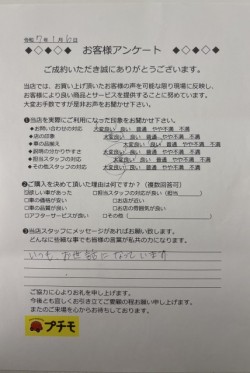 令和 7年 1月 6日
◆◇◆◇◆ お客様アンケート ◆◇◆◇◆
ご成約いただき誠にありがとうございます。
当店では、お買い上げ頂いたお客様の声を可能な限り現場に反映し、
お客様により良い商品とサービスを提供することに努めています。
大変お手数ですが是非お声をお聞かせ下さい。
❶当店を実際にご利用になった印象をお聞かせ下さい。
◆お問い合わせの対応 大変良い 良い 普通 やや不満 不満
◆店の印象 大変良い 良い 普通 やや不満 不満
◆車の品揃え 大変良い 良い 普通 やや不満 不満
◆説明の分かりやすさ 大変良い 良い 普通 やや不満 不満
◆担当スタッフの対応 大変良い 良い 普通 やや不満 不満
◆その他スタッフの対応 大変良い 良い 普通 やや不満 不満
❷ご購入を決めて頂いた理由は何ですか?(複数回答可)
□欲しい車があった □担当スタッフの対応が良い(担当 )
□車の価格が安い □お店が近い
□車の品質が良い □お店の雰囲気が良い
□アフターサービスが良い □その他( )
❸当店スタッフにメッセージがあればお願い致します。
どんなに些細な事でも皆様の言葉が私共の力になります。
いつも お世話になっています
ご協力に心よりお礼を申し上げます。
今後とも宜しくお引き立てご愛顧の程お願い申し上げます。
またのご来場を心からお待ちしております。
プチモ